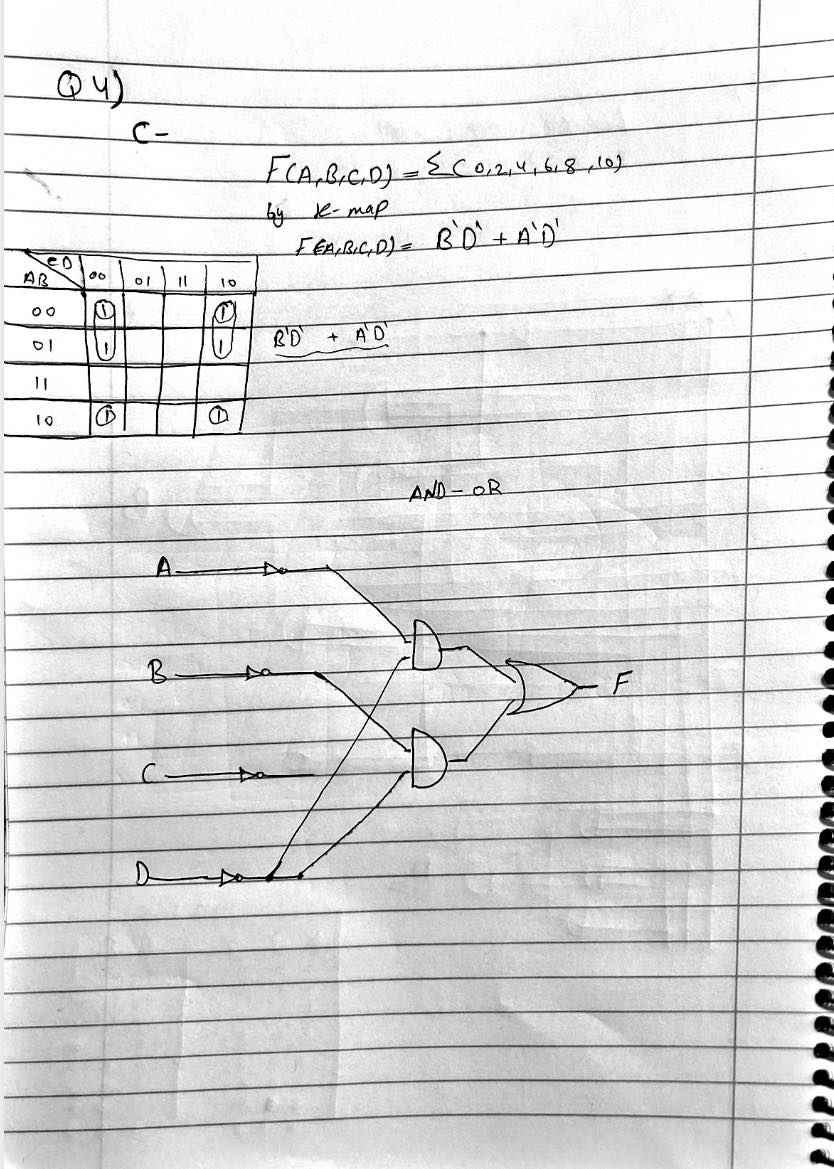 Q4)
C-
F(A,B,C,D) = Σ(0,2,4,6,8,10)
by K-map
F(A,B,C,D) = B'D' + A'D'
CD 00 01 11 10
AB
00 1 1
01 1 1 B'D' + A'D'
11
10 1 1
AND-OR
A
B
F
C
D